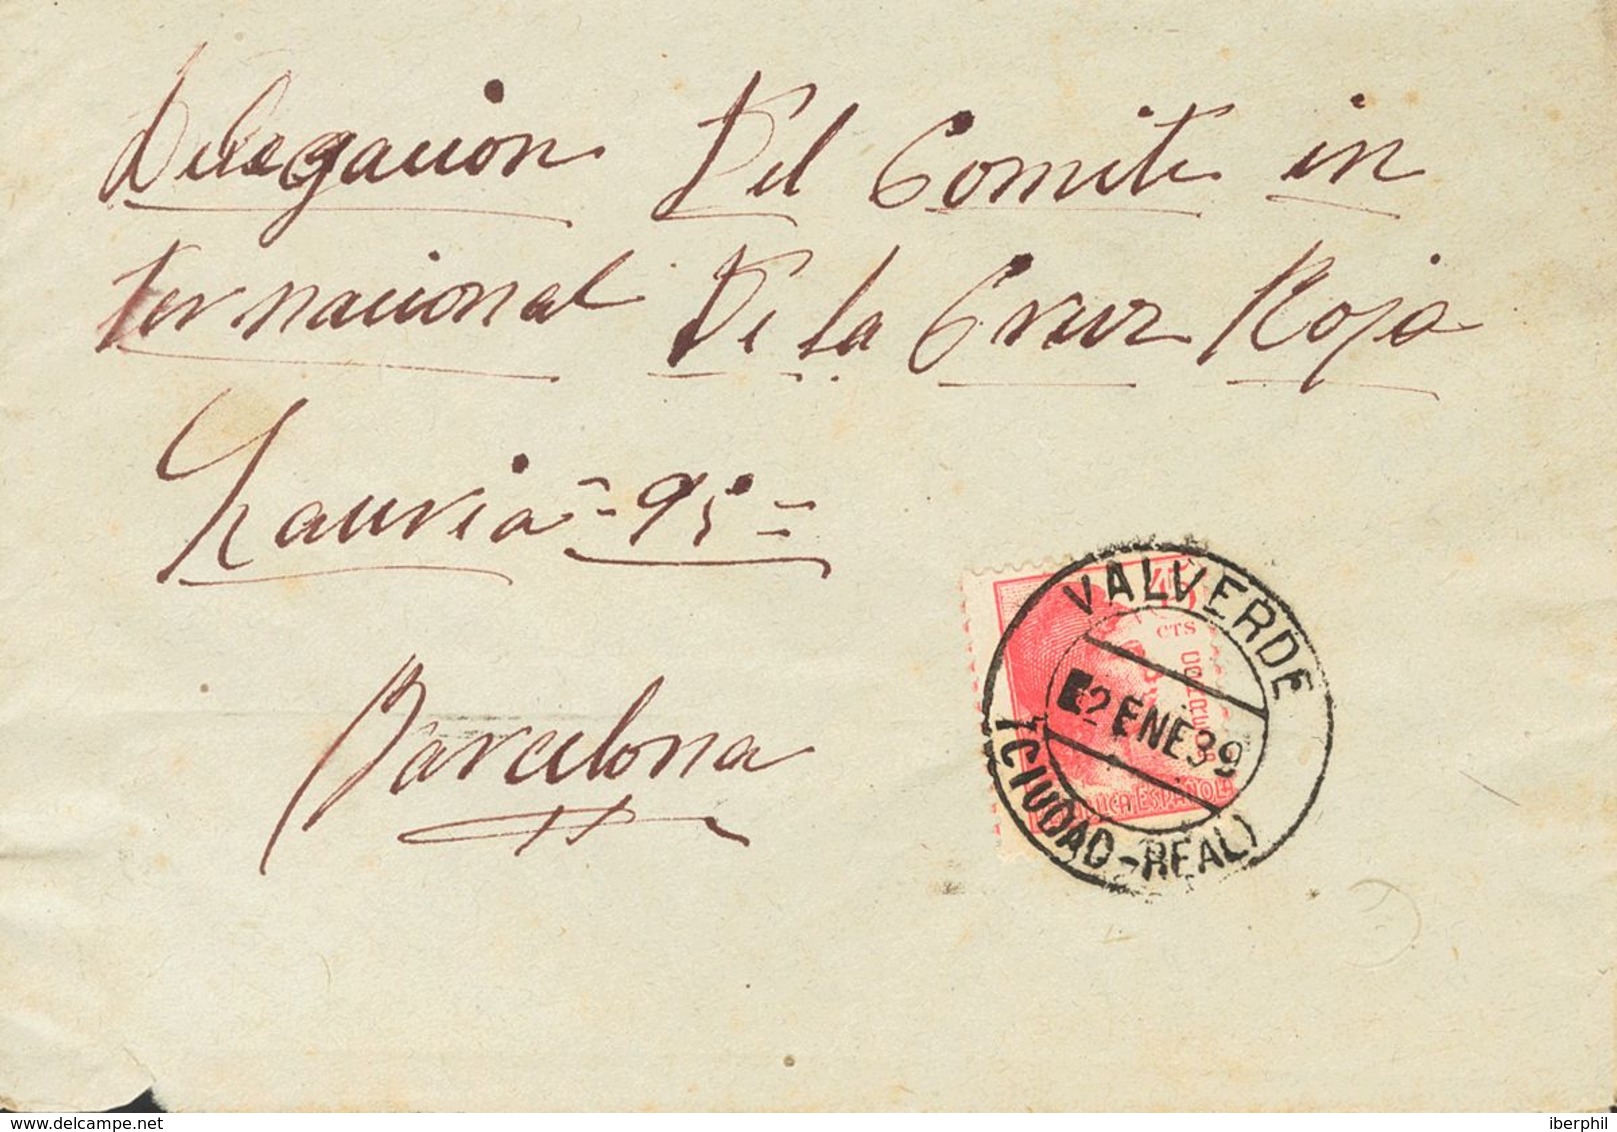 Delegacion Del Comite in
ternacional De la Cruz Roja
Lauria - 95 =
Barcelona
45
CTS
CORREOS
REPUBLICA ESPAÑOLA
VALVERDE
2 ENE 39
(CIUDAD-REAL)
delcampe.net
iberphil